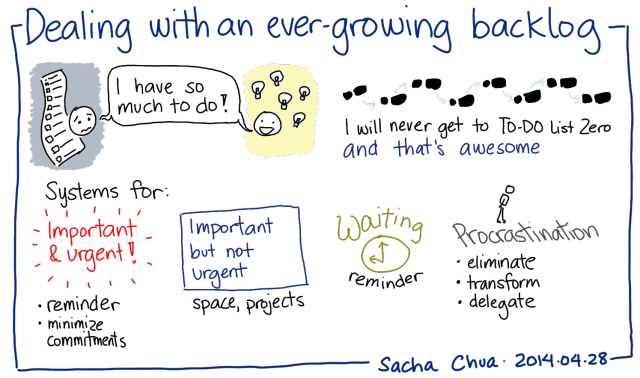 Dealing with an ever-growing backlog
I have so
much to do!
I will never get to TO-DO List Zero
and that's awesome
Systems for:
Important
& urgent!
• reminder
• minimize
commitments
Important
but not
urgent
space, projects
Waiting
reminder
Procrastination
• eliminate
• transform
• delegate
Sacha Chua · 2014.04.28